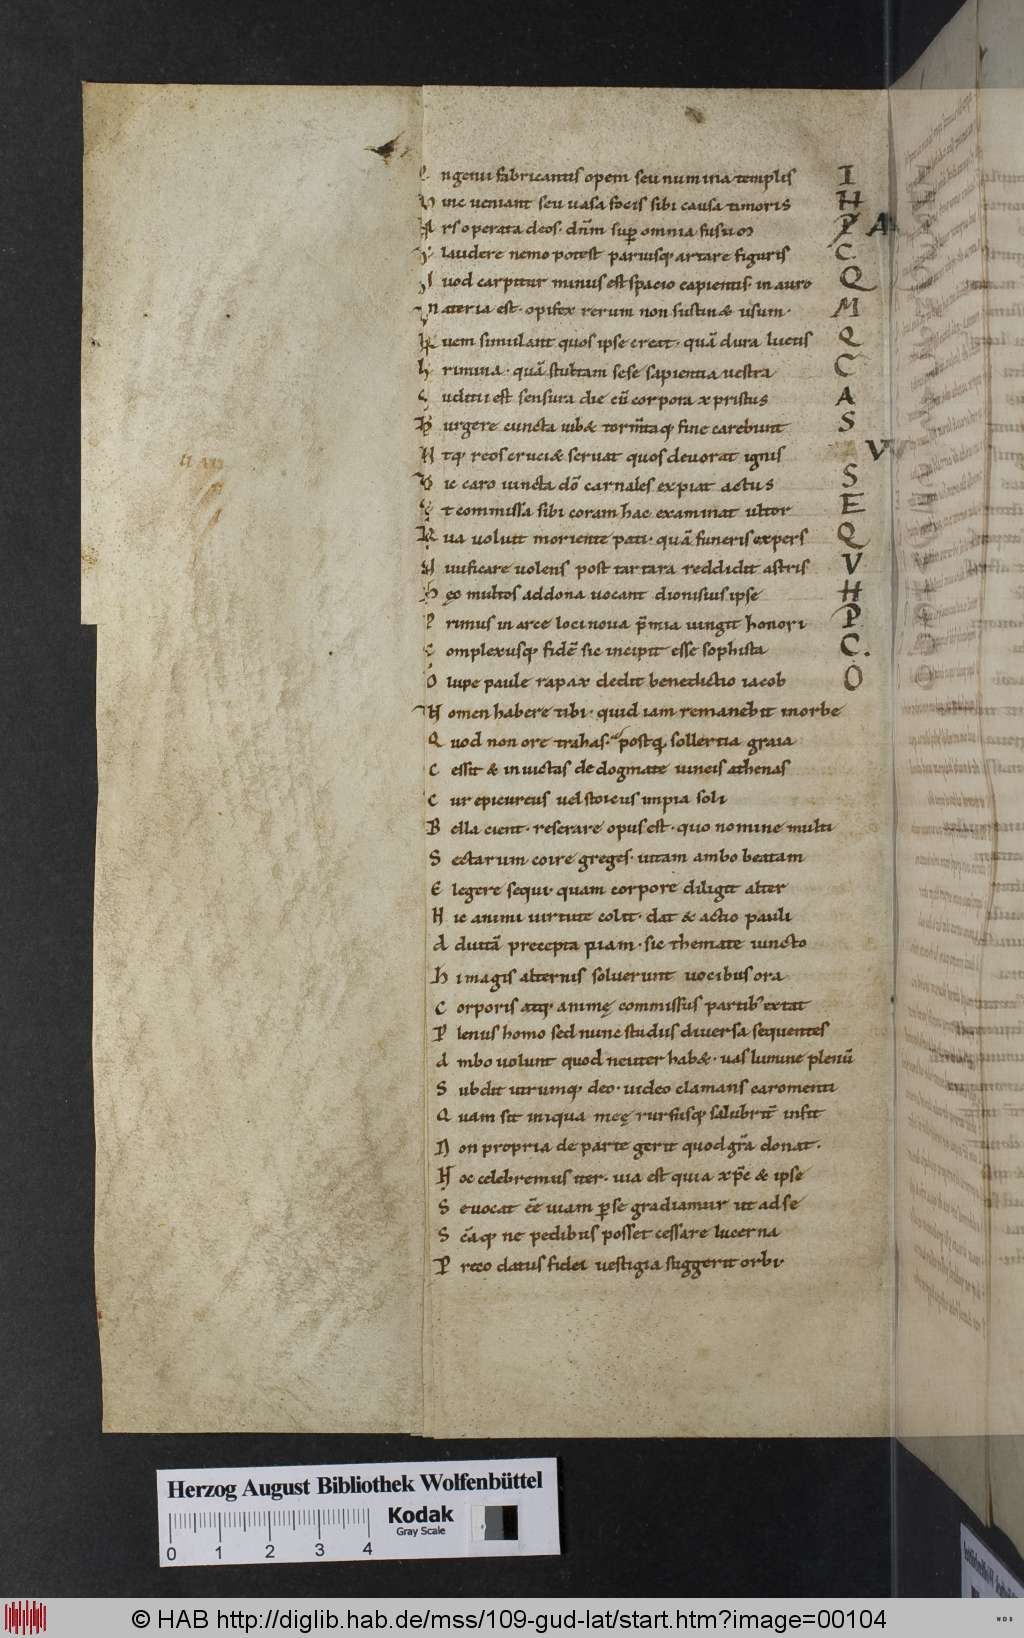 ngenii fabricantis opem seu numina templis I
inc veniant seu vasa focis sibi causa timoris H
rs operata deos· dñm sup omnia fusum P A
laudere nemo potest paruisq; artare figuris C
uod carpitur minus est spacio capientis· in auro Q
ateria est· opifex rerum non sustin& usum· M
uem simulant quos ipse creat· quā dura luctis Q
rimina· quā stultam sese sapientia uestra C
uditii est sensura die cū corpora xpristus A
urgere cuncta iub& tormtaq; fine carebunt S
tq; reos cruci& seruat quos deuorat ignis V
ic caro iuncta dō carnales expiat actus S
t commissa sibi coram hac examinat ultor E
ua uoluit moriente pati· quā funeris expers Q
iuificare uolens post tartara reddidit astris V
ęo multos addona uocant dionisius ipse H
P rimus in arce loci noua p̄mia iungit honori P
C omplexusq; fidē sic incipit esse sophista C.
O lupe paule rapax dedit benedictio iacob O
N omen habere tibi· quid iam remanebit in orbe
Q uod non ore trahas· postq; sollertia graia
C essit & inuictas de dogmate uincis athenas
C ur epicureus uel stoicus impia soli
B ella cient· reserare opus est· quo nomine multi
S ectarum coire greges· uitam ambo beatam
E legere sequi· quam corpore diligit alter
H ic animi uirtute colit· dat & actio pauli
d duitā precepta piam· sic themate iuncto
h i magis alternis soluerunt uocibus ora
C orporis atq; animę commissus partib' extat
P lenus homo sed nunc studus diuersa sequentes
d mbo uolunt quod neuter hab&· uas lumine plenū
S ubdit utrumq; deo· uideo clamans caro menti
Q uam sit iniqua meę rursusq; salubrit̄ infit
N on propria de parte gerit quod gr̄a donat·
H oc celebremus iter· uia est quia xp̄c & ipse
S e uocat ēē uiam p se gradiamur ut ad se
S cāq; ne pedibus posset cessare lucerna
P reco datus fidei uestigia suggerit orbi·
Herzog August Bibliothek Wolfenbüttel
0 1 2 3 4
Kodak
Gray Scale
© HAB http://diglib.hab.de/mss/109-gud-lat/start.htm?image=00104